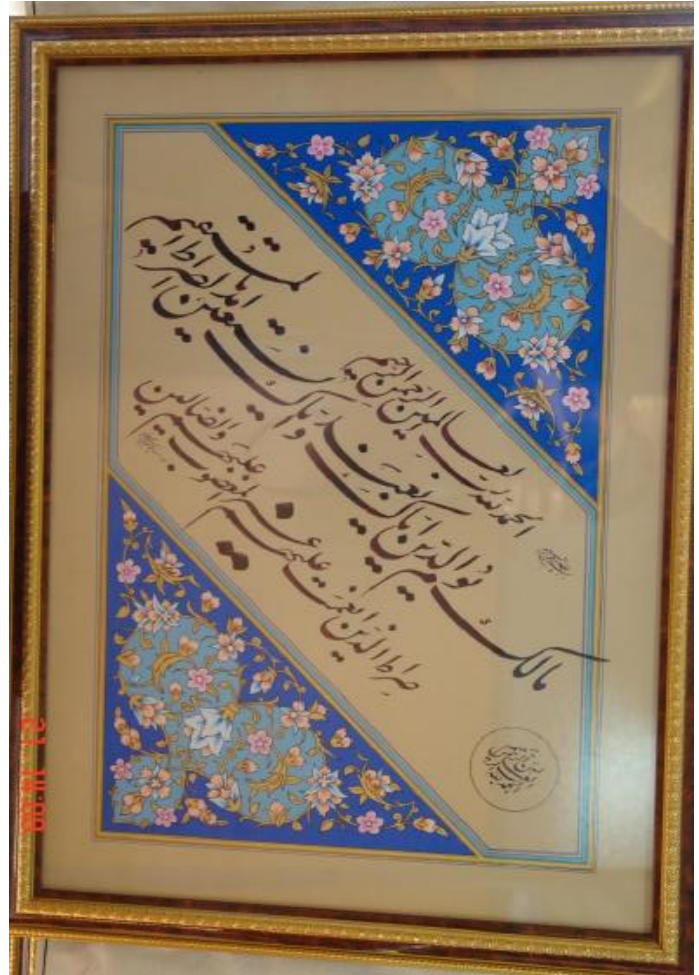 الحمد لله رب العالمین الرحمن الرحیم
مالک یوم الدین ایاک نعبد و ایاک نستعین اهدنا الصراط المستقیم
صراط الذین انعمت علیهم غیر المغضوب علیهم والضالین